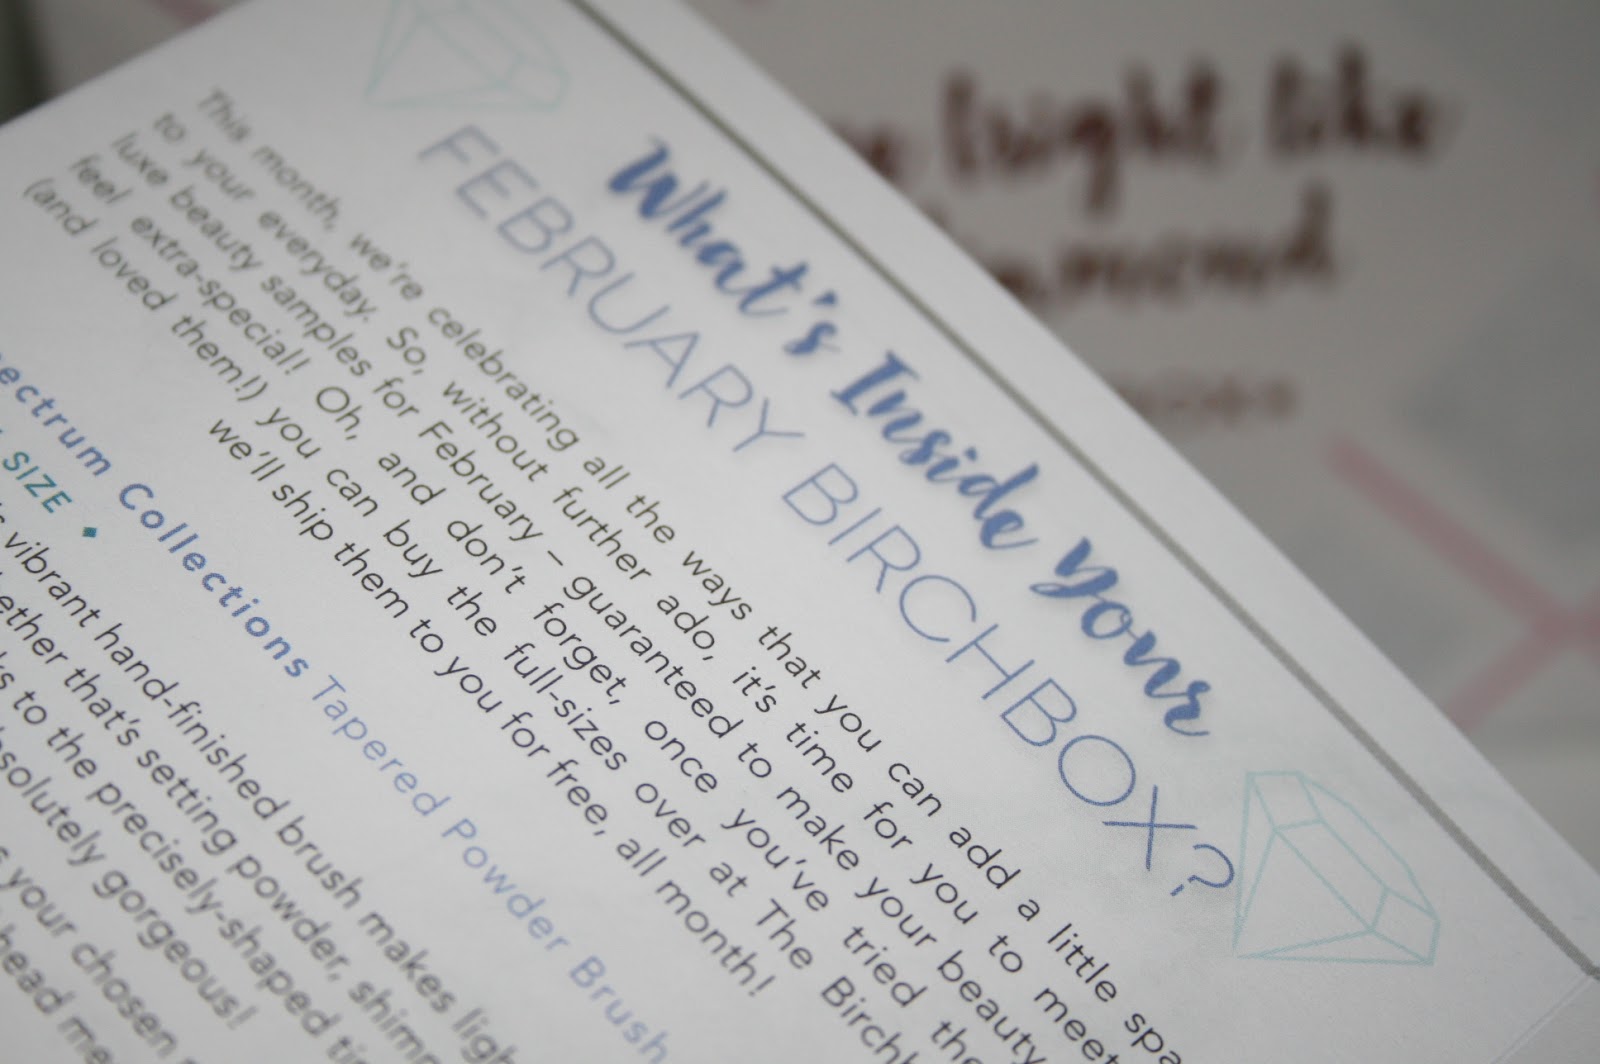 What's Inside your
FEBRUARY BIRCHBOX?
This month, we're celebrating all the ways that you can add a little spa
to your everyday. So, without further ado, it's time for you to meet
luxe beauty samples for February – guaranteed to make your beauty
feel extra-special! Oh, and don't forget, once you've tried the
(and loved them!) you can buy the full-sizes over at The Birchb
we'll ship them to you for free, all month!
ectrum Collections Tapered Powder Brush
SIZE ◆
's vibrant hand-finished brush makes ligh
ether that's setting powder, shimm
ks to the precisely-shaped ti
bsolutely gorgeous!
s your chosen
head me
bright like